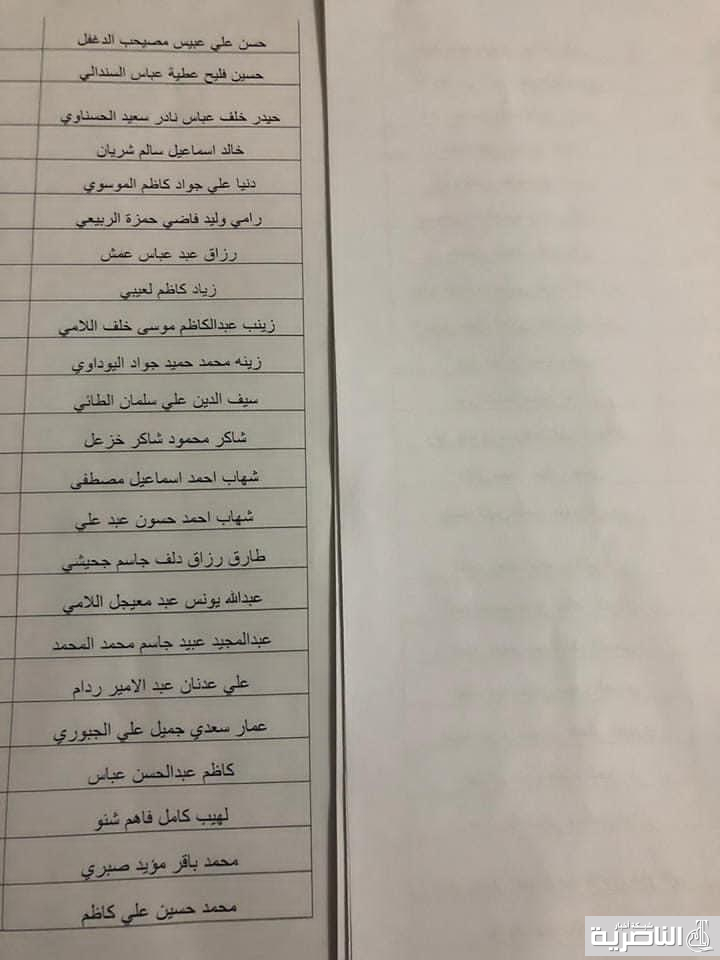 حسن علي عبيس مصيحب الدغفل
حسين فليح عطية عباس السندالي
حيدر خلف عباس نادر سعيد الحسناوي
خالد اسماعيل سالم شريان
دنيا علي جواد كاظم الموسوي
رامي وليد فاضي حمزة الربيعي
رزاق عبد عباس عمش
زياد كاظم لعيبي
زينب عبدالكاظم موسى خلف اللامي
زينه محمد حميد جواد اليوداوي
سيف الدين علي سلمان الطائي
شاكر محمود شاكر خزعل
شهاب احمد اسماعيل مصطفى
شهاب احمد حسون عبد علي
طارق رزاق دلف جاسم جحيشي
عبدالله يونس عبد معيجل اللامي
عبدالمجيد عبيد جاسم محمد المحمد
علي عدنان عبد الامير ردام
عمار سعدي جميل علي الجبوري
كاظم عبدالحسن عباس
لهيب كامل فاهم شنو
محمد باقر مؤيد صبري
محمد حسين علي كاظم
شبكة اخبار
الناصرية